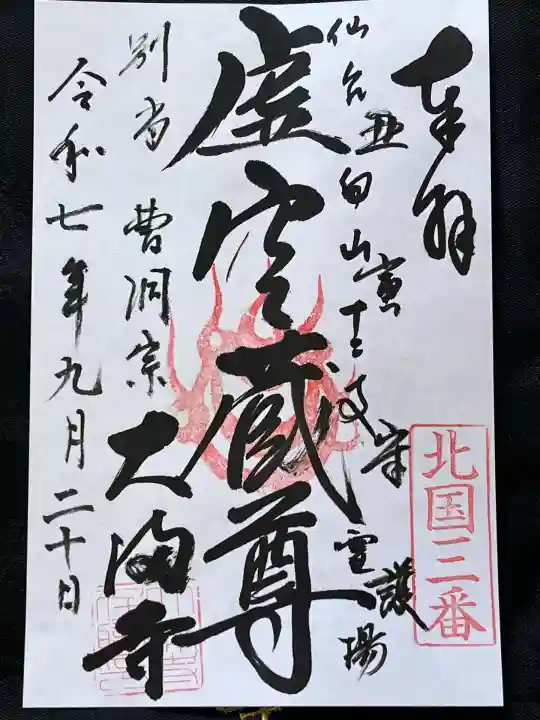 奉拝
北国三番
丑寅守護
仙台向山十二支霊場
虚空蔵尊
別当 曹洞宗 大満寺
令和七年九月二十日